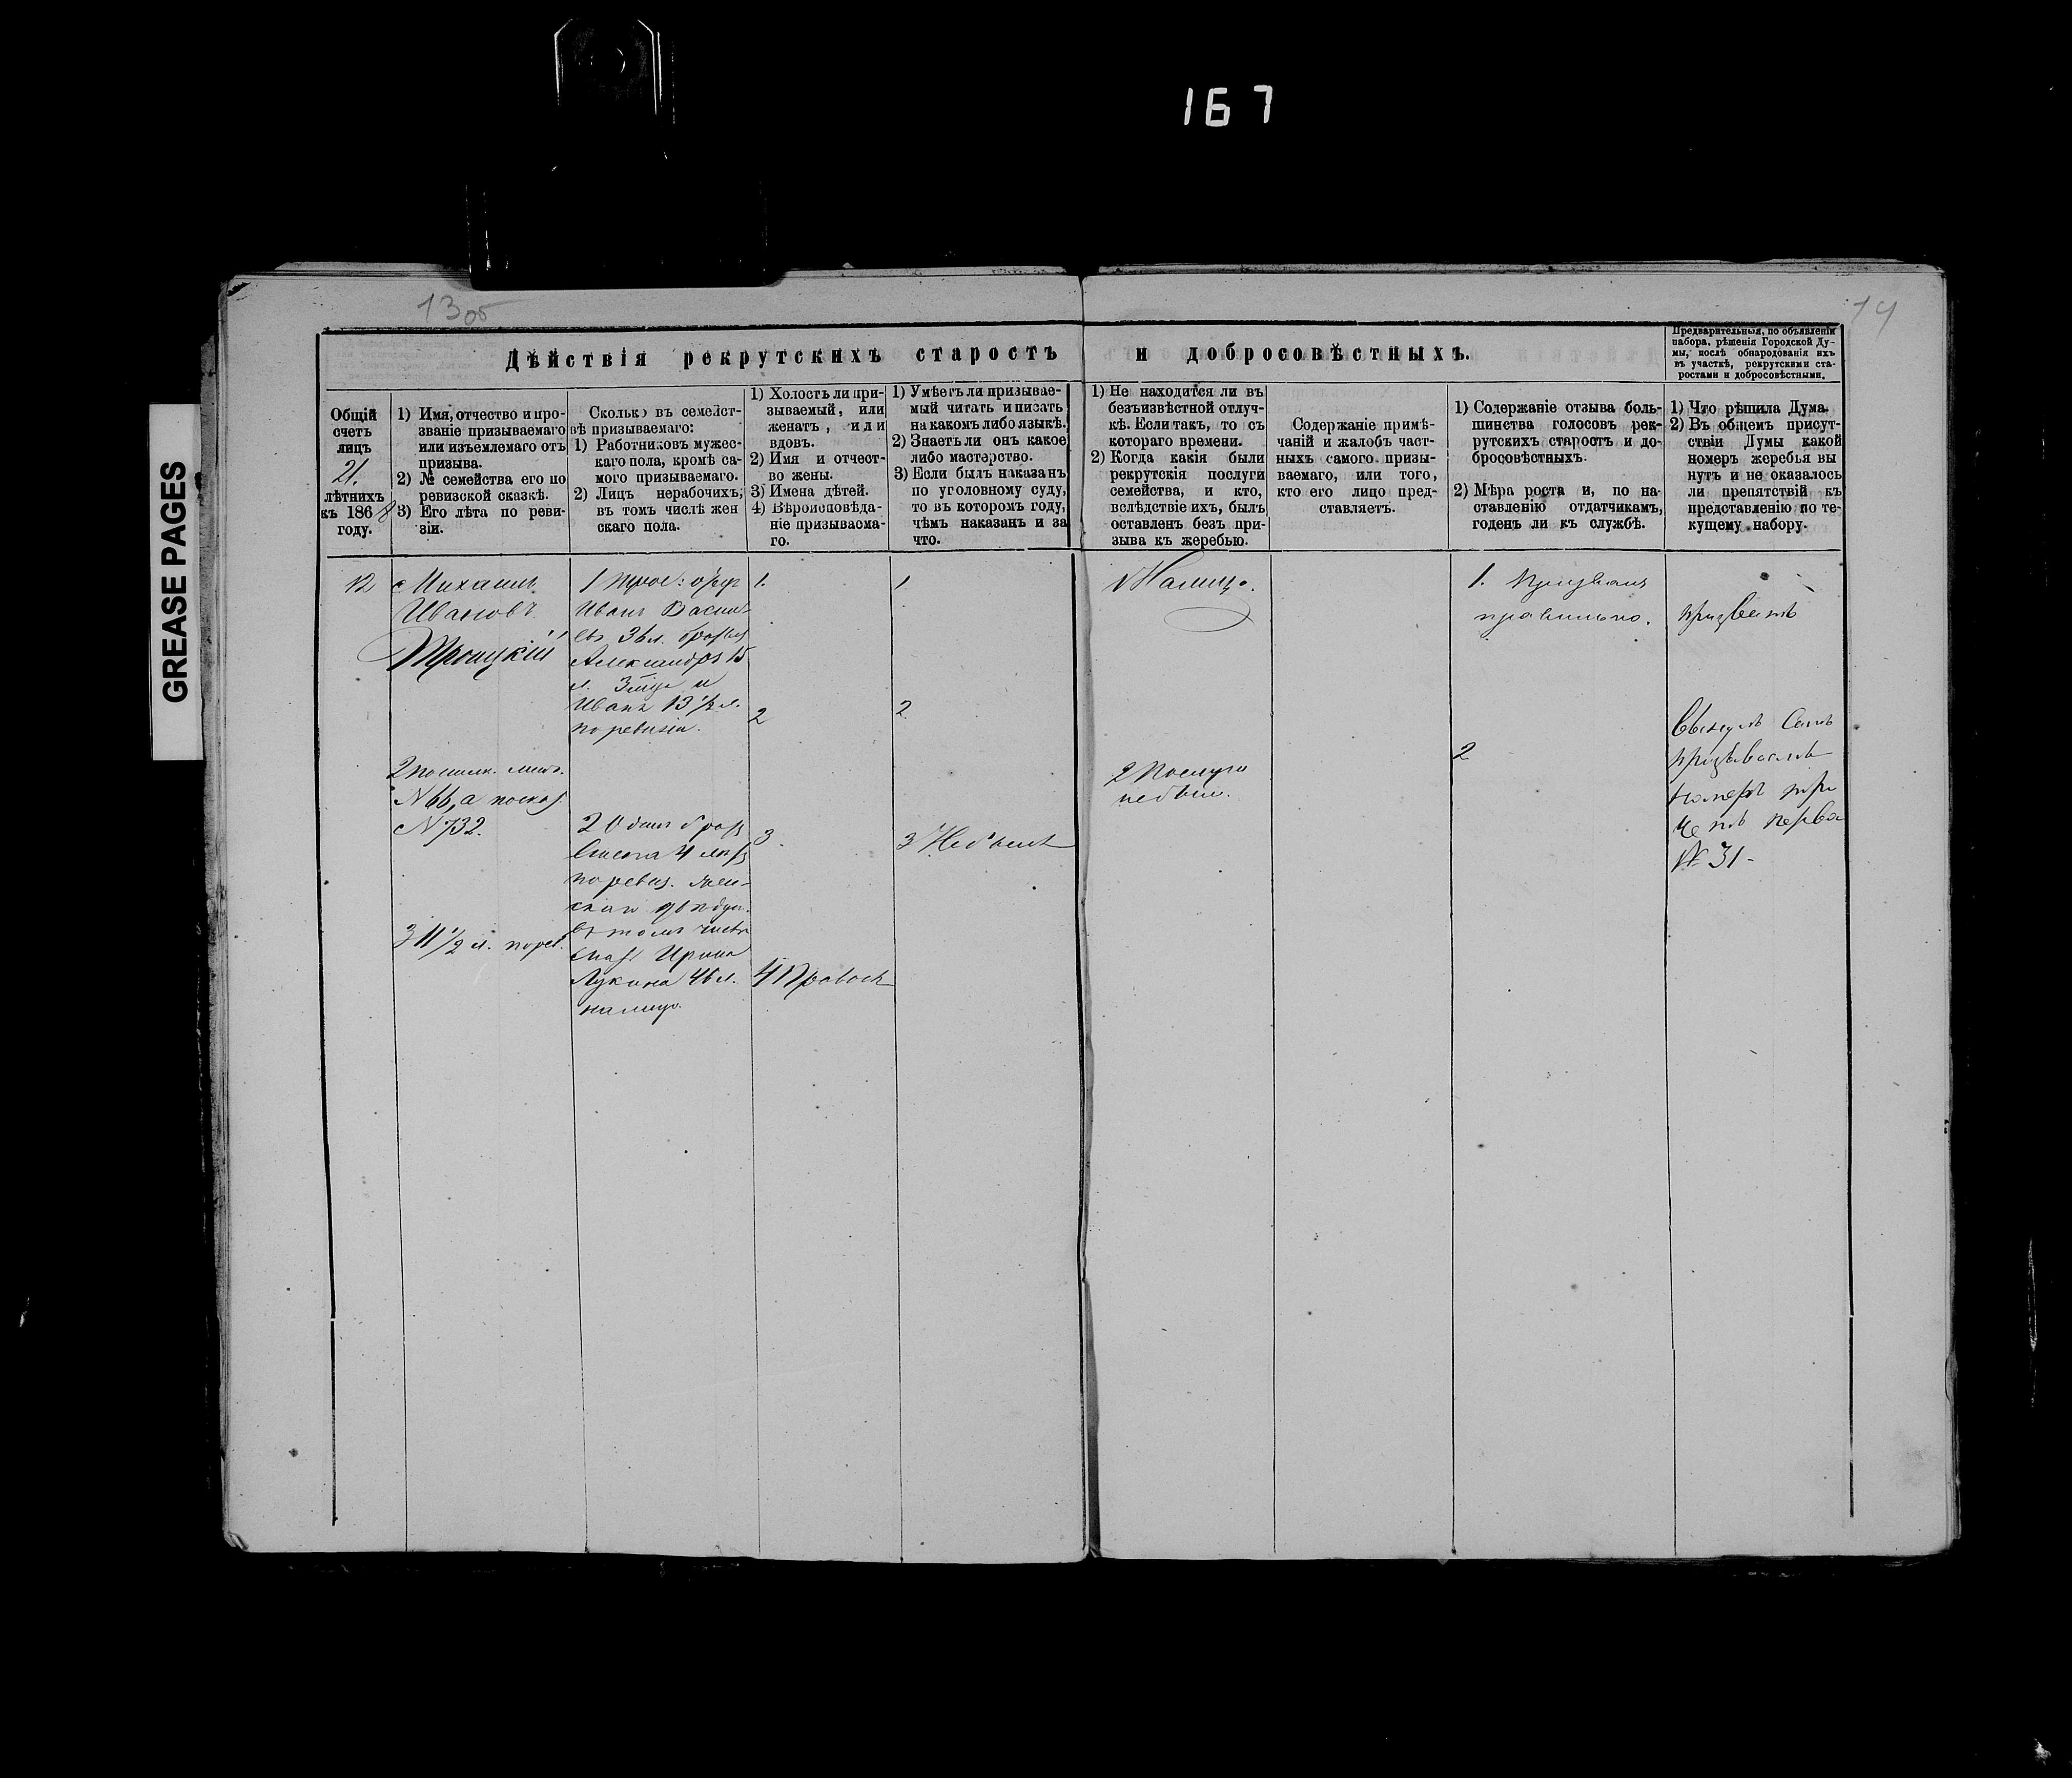 167
GREASE PAGES
13 об
14
Дѣйствія рекрутскихъ старостъ и добросовѣстныхъ.
Предварительныя, по объявленіи
набора, рѣшенія Городской Ду-
мы, послѣ обнародованія ихъ
въ участкѣ, рекрутскими ста-
ростами и добросовѣстными.
Общій
счетъ
лицъ
21.
лѣтнихъ
къ 1868
году.
1) Имя, отчество и про-
званіе призываемаго
или изъемлемаго отъ
призыва.
2) № семейства его по
ревизской сказкѣ.
3) Его лѣта по реви-
зіи.
Сколько въ семейст-
вѣ призываемаго:
1) Работниковъ мужес-
каго пола, кромѣ са-
мого призываемаго.
2) Лицъ нерабочихъ,
въ томъ числѣ жен
скаго пола.
1) Холостъ ли при-
зываемый, или
женатъ, или
вдовъ.
2) Имя и отчест-
во жены.
3) Имена дѣтей.
4) Вѣроисповѣда-
ніе призываема-
го.
1) Умѣетъ ли призывае-
мый читать и писать
на какомъ либо языкѣ.
2) Знаетъ ли онъ какое
либо мастерство.
3) Если былъ наказанъ
по уголовному суду,
то въ которомъ году,
чѣмъ наказанъ и за
что.
1) Не находится ли въ
безъизвѣстной отлуч-
кѣ. Если такъ, то съ
котораго времени.
2) Когда какія были
рекрутскія послуги
семейства, и кто,
вслѣдствіе ихъ, былъ
оставленъ безъ при-
зыва къ жеребью.
Содержаніе примѣ-
чаній и жалобъ част-
ныхъ самого призы-
ваемаго, или того,
кто его лицо пред-
ставляетъ.
1) Содержаніе отзыва боль-
шинства голосовъ рек-
рутскихъ старостъ и до-
бросовѣстныхъ.
2) Мѣра роста и, по на-
ставленію отдатчикамъ,
годенъ ли къ службѣ.
1) Что рѣшила Дума.
2) Въ общемъ присут-
ствіи Думы какой
номеръ жеребья вы
нутъ и не оказалось
ли препятствій къ
представленію по те-
кущему набору.
12
Михаилъ
Ивановъ
Троицкій
2
№ 66, а по
№ 732.
3 11 1/2 л. по рев.
1 трое:
Иванъ Васил-
36 л. братья
Александръ 15
л. и
Иванъ 13 1/2 л.
по ревизіи.
2 Одинъ братъ
4
по ревиз. жен-
скаго
въ томъ числѣ
мать Ирина
Лукина 46 л.
налицо.
1.
2
3.
4 Правосл
1
2
3 Не былъ
1 Налицо.
2 Послуги
не было.
1. Призванъ
правильно.
2
призвать
Вынулъ самъ
призываемый
номеръ три
первый
№ 31